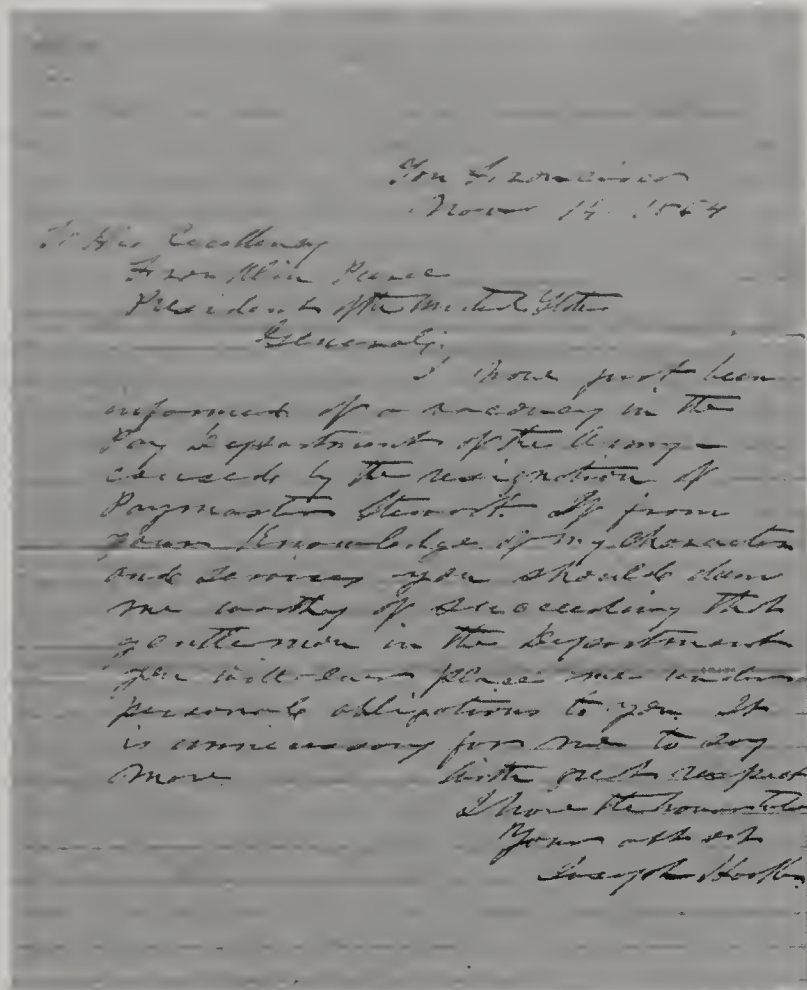 San Francisco
Novr 14 1854
To His Excellency
Franklin Pierce
President of the United States
General;
I have just been
informed of a vacancy in the
Pay Department of the Army -
caused by the resignation of
Paymaster Steuart. If from
your knowledge of my character
and services you should deem
me worthy of succeeding that
gentleman in the Department
you will ever place me under
personal obligations to you. It
is unnecessary for me to say
more with great respect
I have the honor to be
Your
Joseph Hooker